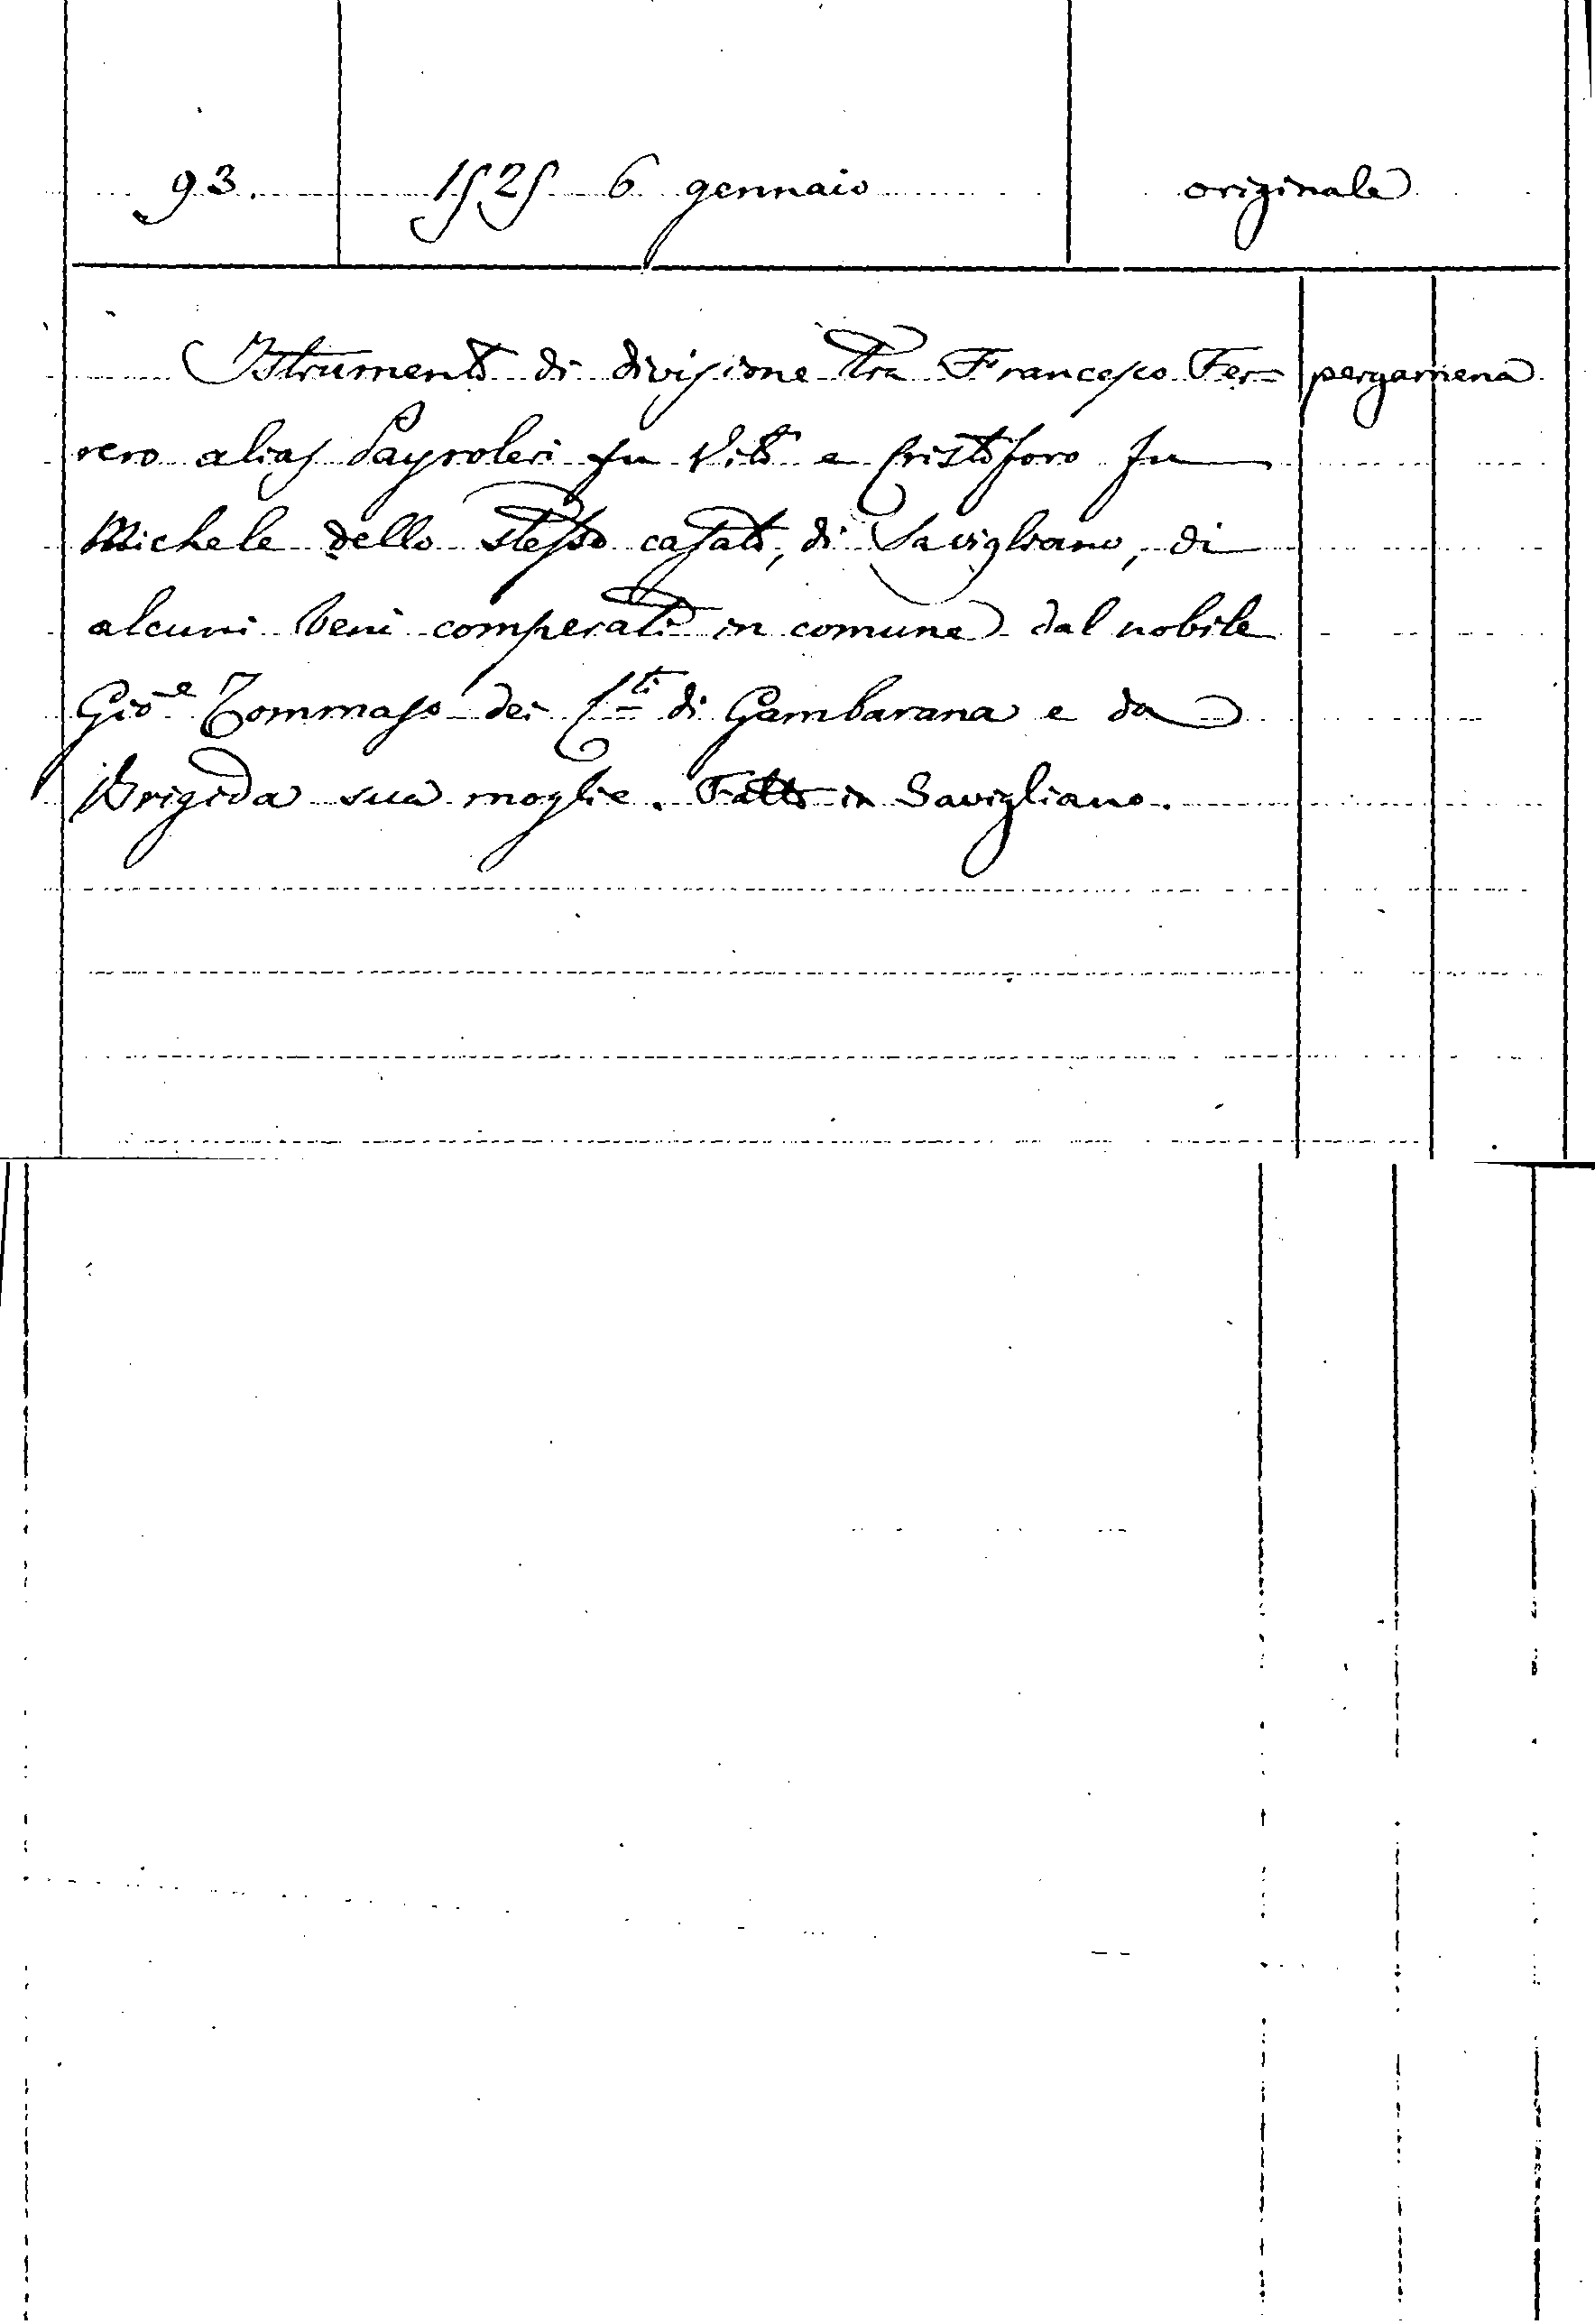 93. 1525 6 gennaio originale
Istrumento di divisione tra Francesco Fer= pergamena
rero alias Payroleri fu Vito e Cristoforo fu
Michele dello stesso casato, di Savigliano, di
alcuni beni comperati in comune dal nobile
Gio.e Tommaso dei C.ti di Gambarana e da
Brigida sua moglie. Fatto in Savigliano.